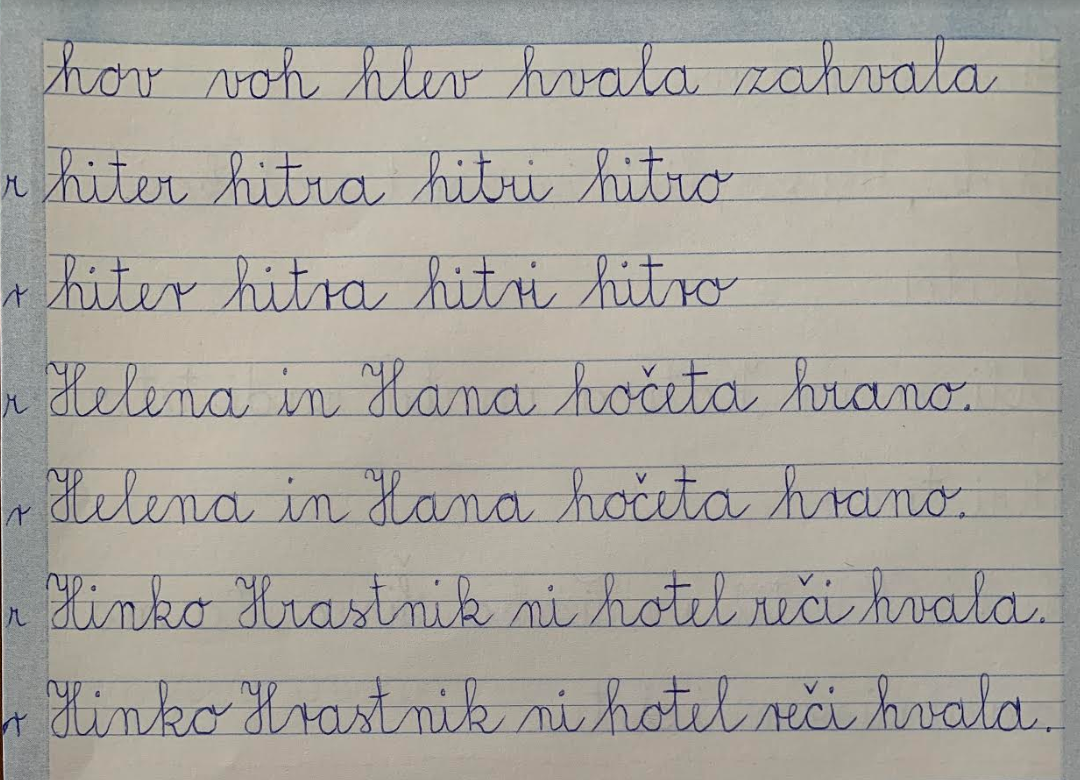 hov voh hlev hvala zahvala
r hiter hitra hitri hitro
r hiter hitra hitri hitro
r Helena in Hana hočeta hrano.
r Helena in Hana hočeta hrano.
r Hinko Hrastnik ni hotel reči hvala.
r Hinko Hrastnik ni hotel reči hvala.